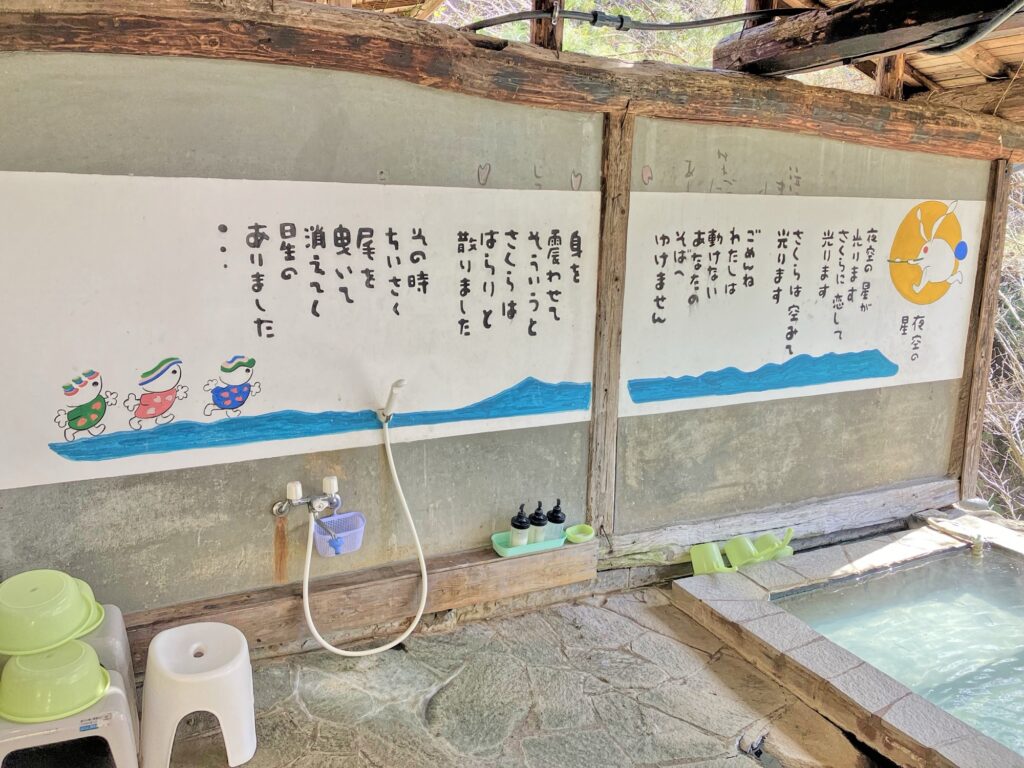 夜空の
星
夜空の星が
光ります
さくらに恋して
光ります
さくらは空みて
光ります
ごめんね
わたしは
動けない
あなたの
そばへ
ゆけません
身を
震わせて
そういうと
さくらは
はらりと
散りました
その時
ちいさく
尾を
曳いて
消えてく
星の
ありました
・・・